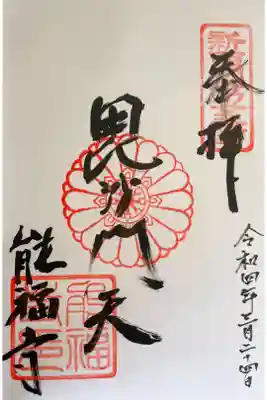 奉拝
令和四年三月二十四日
毘沙門天
能福寺